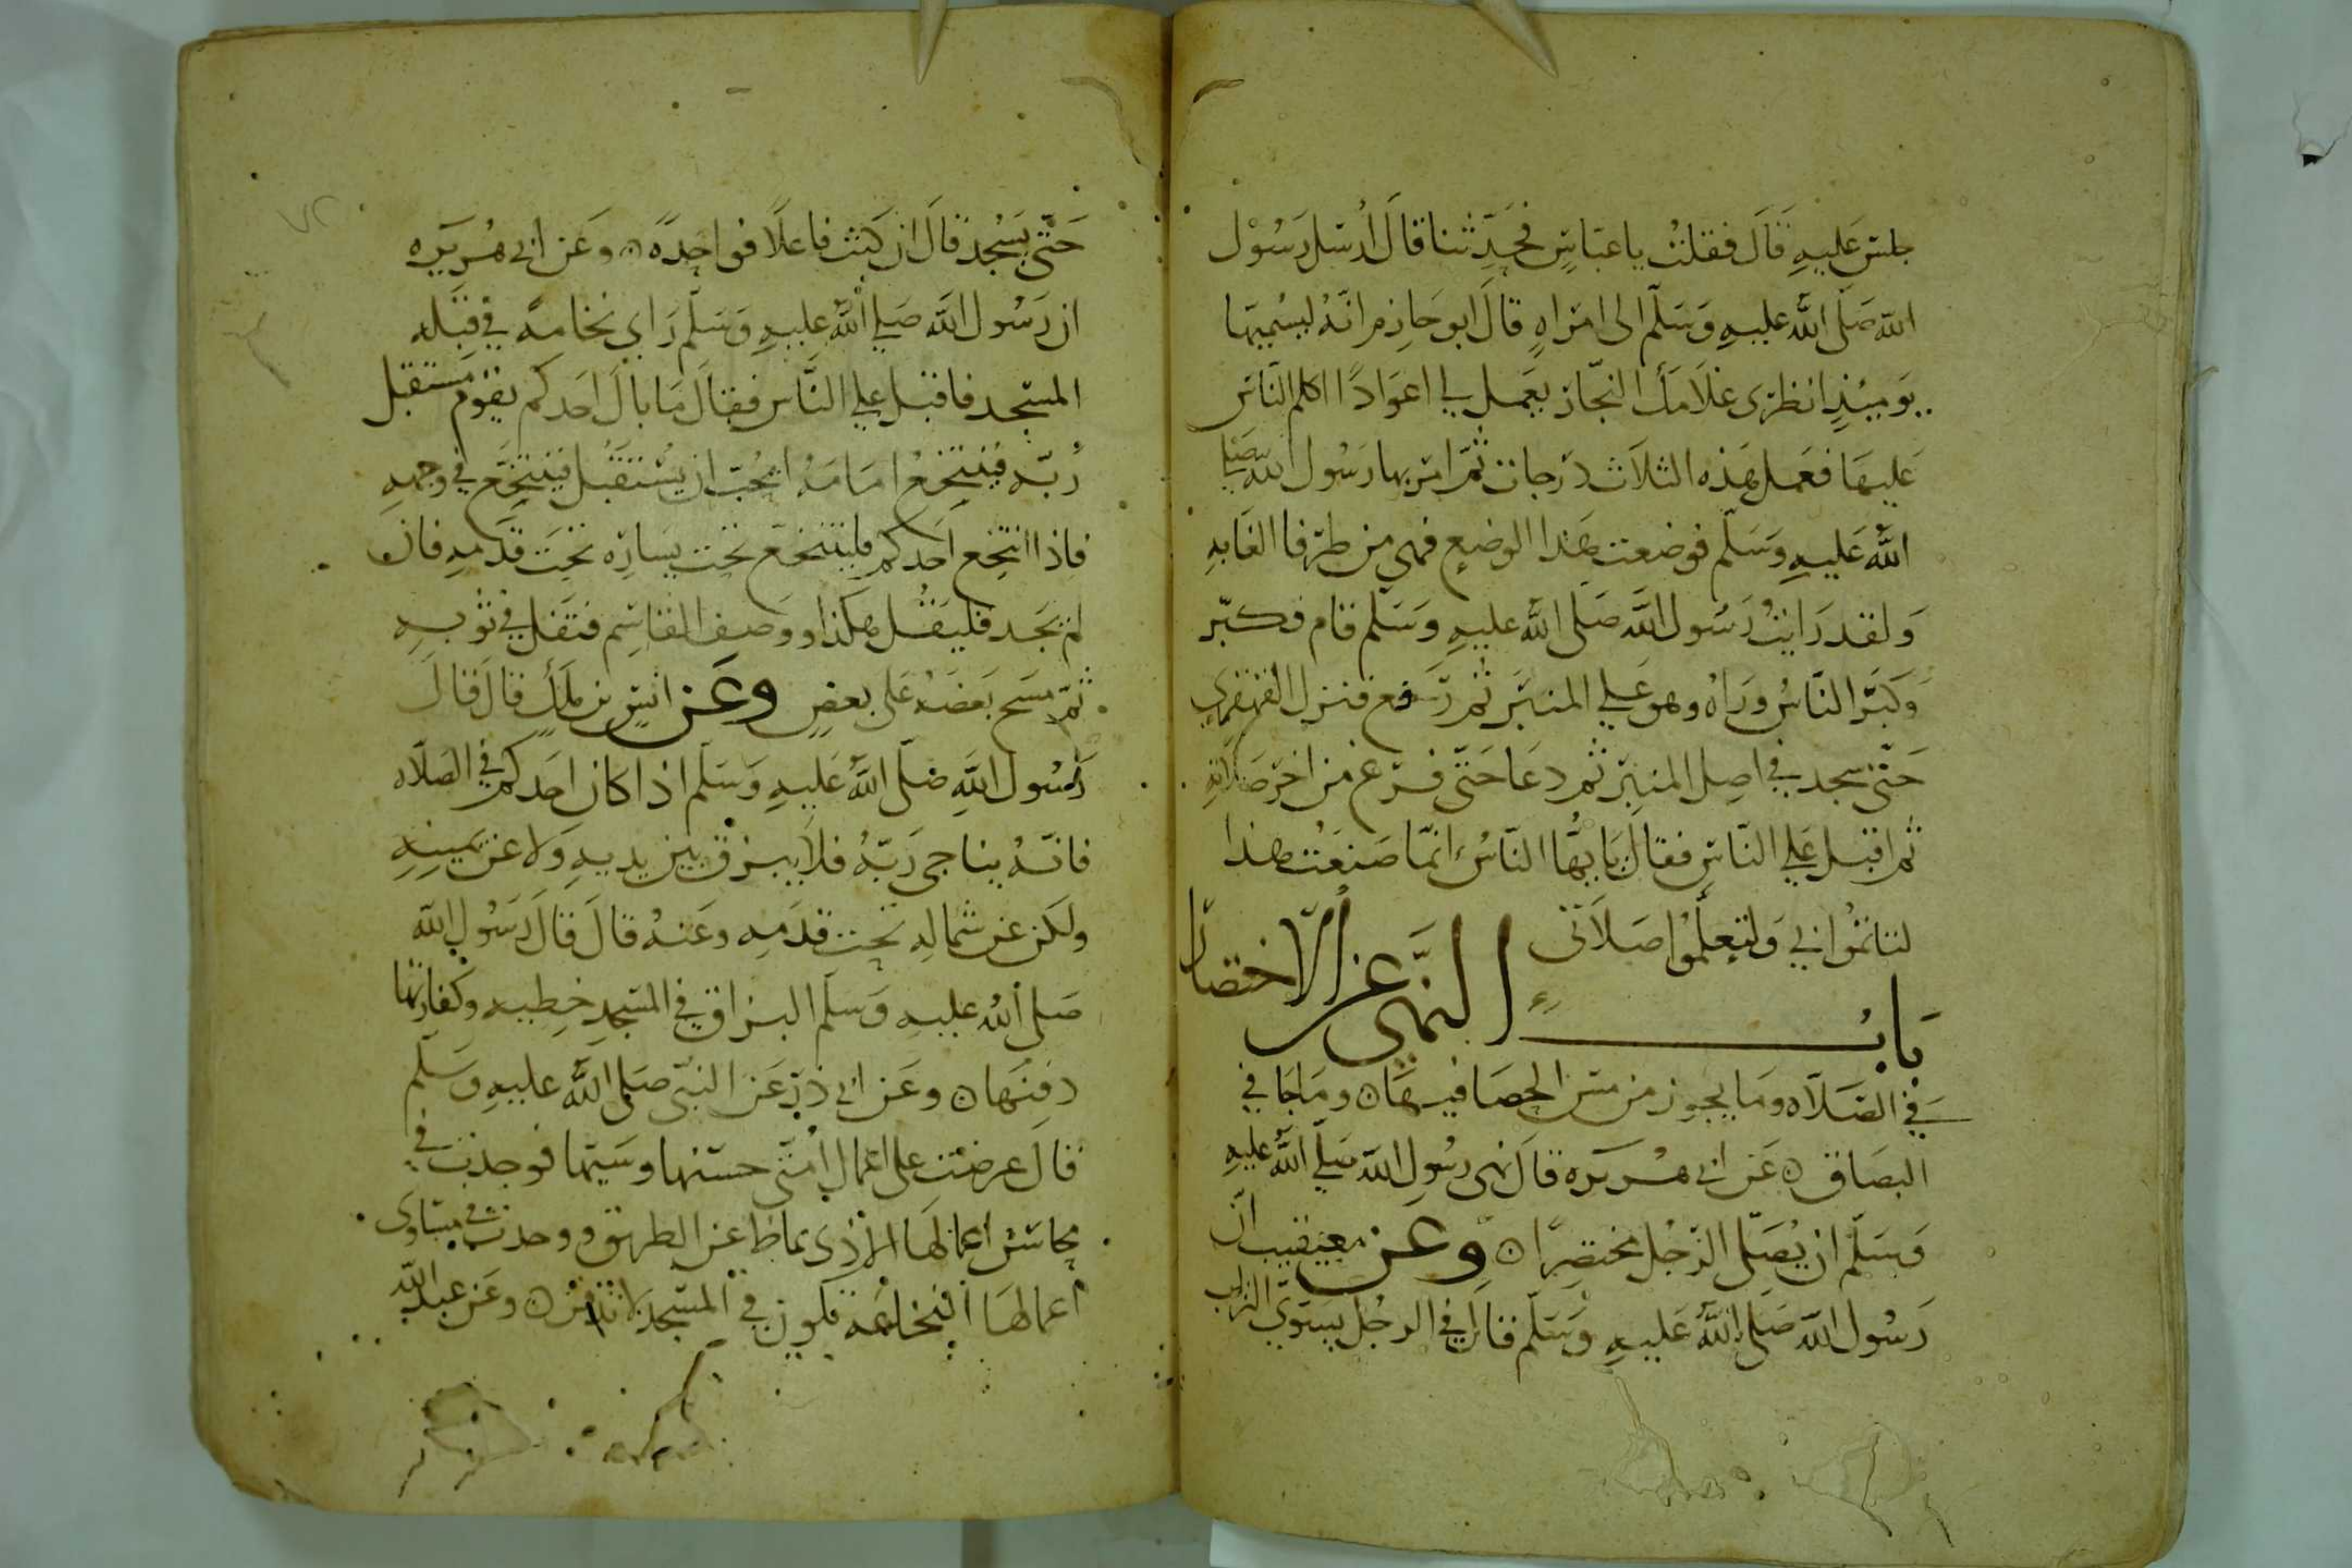 جلس عليه قال فقلت يا عباس فحدثنا قال ارسل رسول
الله صلى الله عليه وسلم الى امراه قال ابو حازم انه ليسميها
يوميذ انظرى غلامك النجار يعمل لي اعوادا اكلم الناس
عليها فعمل هذه الثلاث درجات ثم امر بها رسول الله صلي
الله عليه وسلم فوضعت هذا الموضع فهي من طرفا الغابه
ولقد رايت رسول الله صلى الله عليه وسلم قام فكبر
وكبر الناس وراه وهو علي المنبر ثم رفع فنزل القهقرى
حتى سجد في اصل المنبر ثم دعا حتى فرغ من اخر صلاته
ثم اقبل علي الناس فقال يايها الناس انما صنعت هذا
لتاتموا بي ولتعلموا صلاتى
باب النهى عن الاختصار
في الصلاه وما يجوز من مس الحصا فيها ه وما جا في
البصاق ه عن ابي هريره قال نهى رسول الله صلي الله عليه
وسلم ان يصلى الرجل مختصرا ه وعن معيقيب ان
رسول الله صلى الله عليه وسلم قال في الرجل يسوي التراب
حتى يسجد قال ان كنت فاعلا فواحدة ه وعن ابي هريره
ان رسول الله صلي الله عليه وسلم راي نخامة في قبله
المسجد فاقبل علي الناس فقال ما بال احدكم يقوم مستقبل
ربه فيتنخع امامه ايحب ان يستقبل فيتنخع في وجهه
فاذا انتخع احدكم فليتنخع تحت يساره تحت قدمه فان
لم يجد فليقل هكذا ووصف القاسم فتفل في ثوبه
ثم مسح بعضه على بعض وعن انس بن ملك قال قال
رسول الله صلى الله عليه وسلم اذا كان احدكم في الصلاه
فانه يناجى ربه فلا يبزق بين يديه ولا عن يمينه
ولكن عن شماله تحت قدمه وعنه قال قال رسول الله
صلى الله عليه وسلم البزاق في المسجد خطيه وكفارتها
دفنها ه وعن ابي ذر عن النبى صلى الله عليه وسلم
قال عرضت على اعمال امتى حسنها وسيها فوجدت في
محاسن اعمالها الاذى يماط عن الطريق ووجدت في مساوى
اعمالها النخاعه تكون في المسجد لا تدفن ه وعن عبد الله